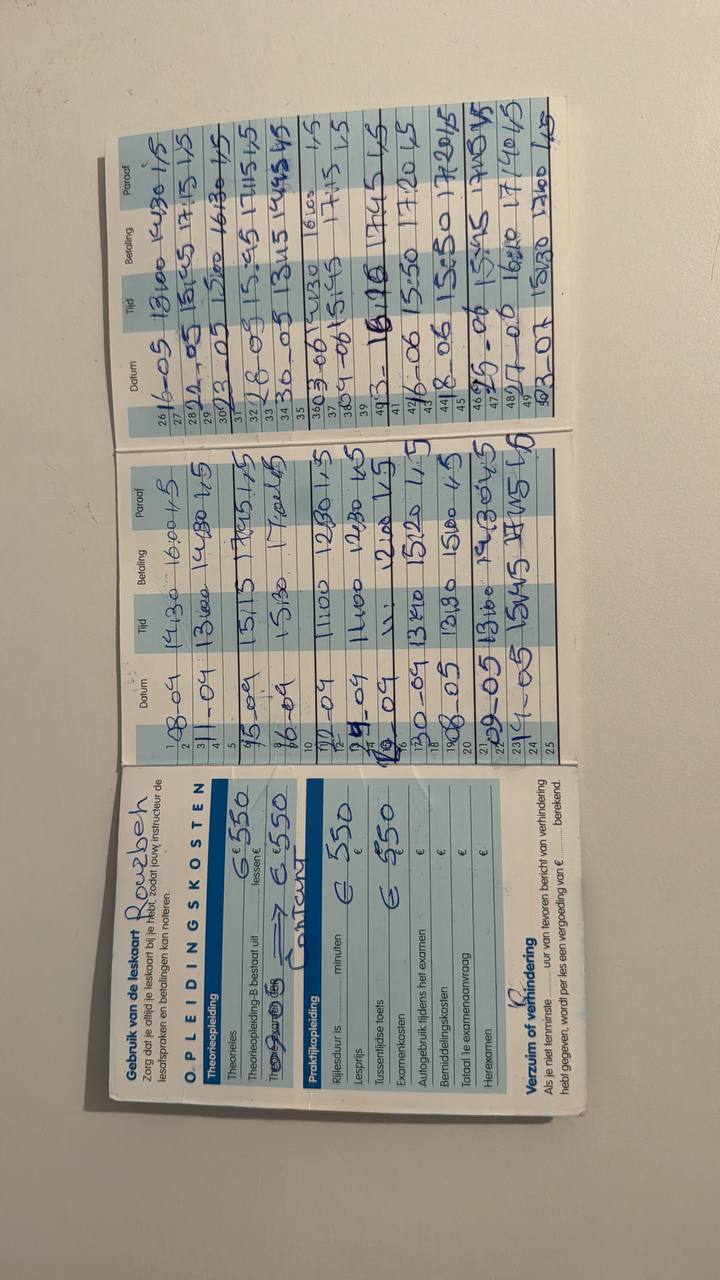 Gebruik van de leskaart Rouzbeh
Zorg dat je altijd je leskaart bij je hebt, zodat jouw instructeur de
lesafspraken en betalingen kan noteren.
OPLEIDINGSKOSTEN
Theorieopleiding
Theorieles € 550
Theorieopleiding-B bestaat uit lessen €
=> € 550
Contant
Praktijkopleiding
Rijlesduur is minuten € 550
Lesprijs €
Tussentijdse toets € 550
Examenkosten
Autogebruik tijdens het examen €
Bemiddelingskosten €
Totaal 1e examenaanvraag €
Herexamen €
Verzuim of verhindering
Als je niet tenminste ........ uur van tevoren bericht van verhindering
hebt gegeven, wordt per les een vergoeding van € ........ berekend.
Datum Tijd Betaling Paraaf
1 08-04 14:30 16:00 1,5
2
3 11-04 13:00 14:30 1,5
4
5
15-04 15:15 17:45 1,5
8
16-04 15:30 17:00 1,5
10
-04 11:00 12:30 1,5
12
-04 11:00 12:30 1,5
-04 12:00 1,5
17 30-04 13:40 15:20 1,5
18
19 08-05 13:30 15:00 1,5
20
21 09-05 13:00 14:30 1,5
23 14-05 15:45 17:45
24
25
Datum Tijd Betaling Paraaf
26 16-05 13:00 14:30 1,5
27
28 22-05 15:45 17:15 1,5
29
30 23-05 15:00 16:30 1,5
31
32 28-05 15:45 17:15 1,5
33
34 30-05 13:15 14:45 1,5
35
36 03-06 14:30 16:00 1,5
37
38 04-06 15:45 17:15 1,5
39
40 17:45 1,5
41
42 16-06 15:50 17:20 1,5
43
44 18-06 15:50 17:20 1,5
45
46 25-06 15:45
47
48 27-06 17:40 1,5
49
50 3-07 15:30 17:00 1,5